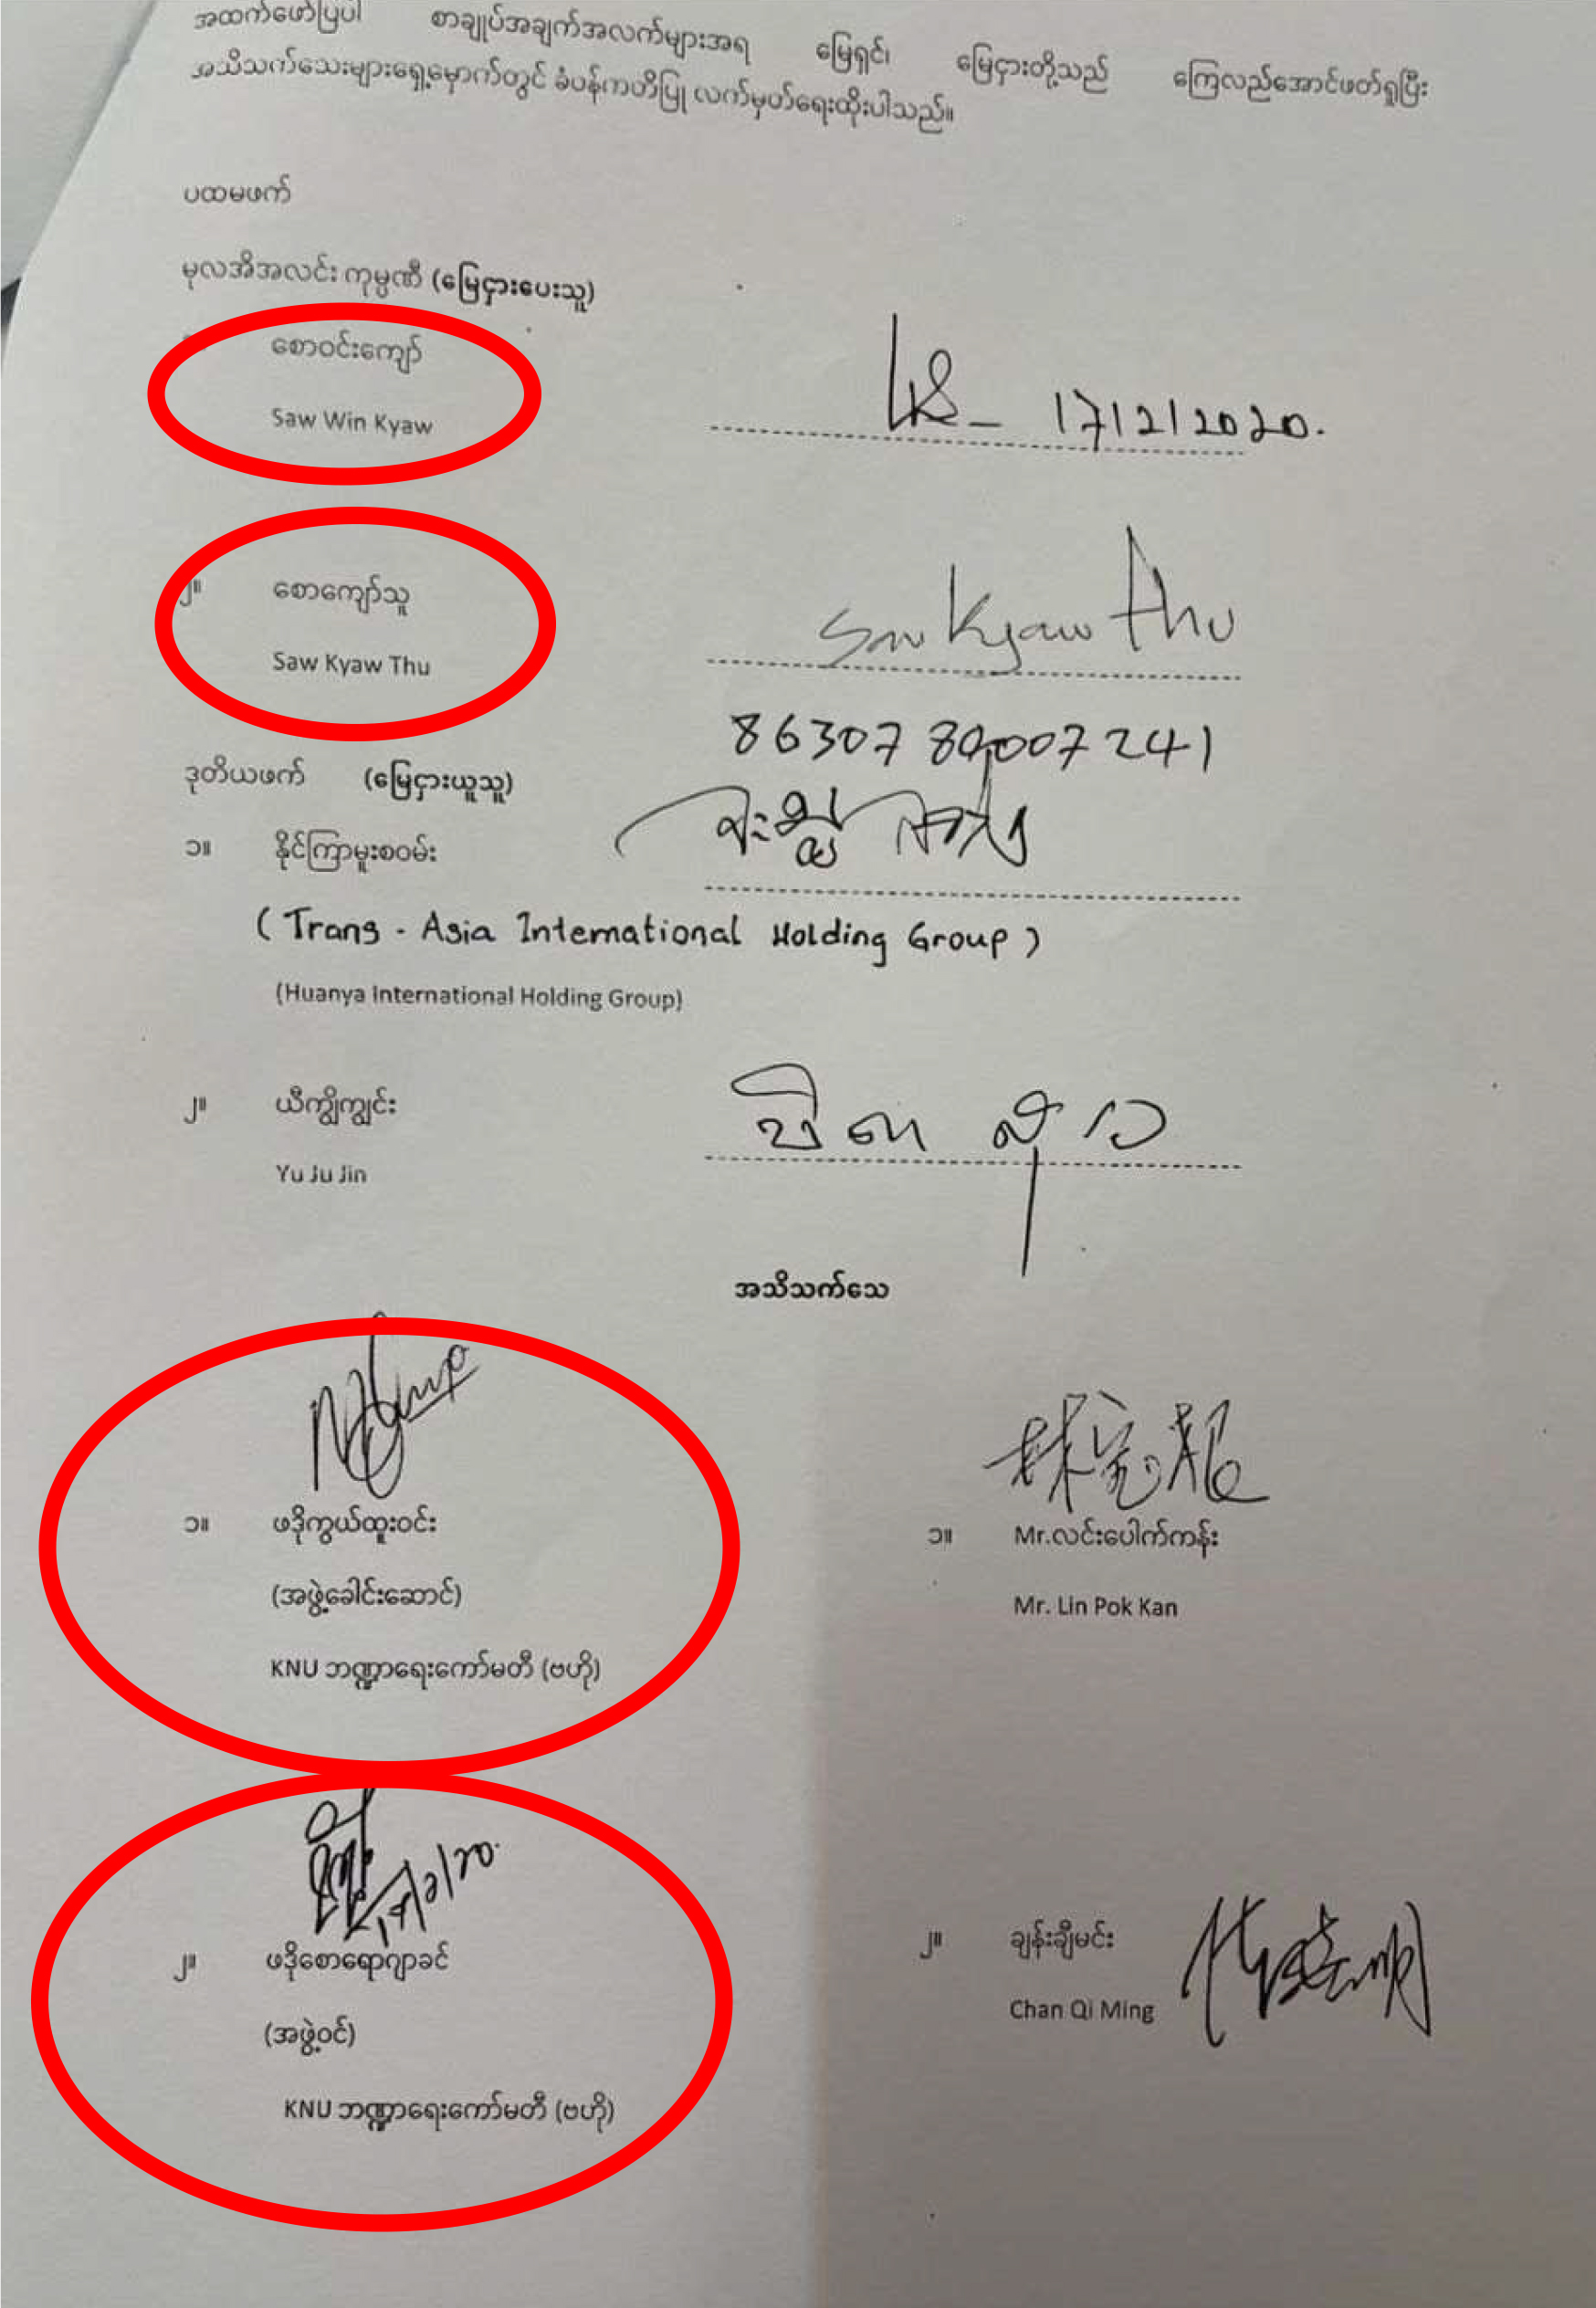 အထက်ဖော်ပြပါ စာချုပ်အချက်အလက်များအရ မြေရှင်၊ မြေငှားတို့သည် ကြေလည်အောင်ဖတ်ရှုပြီး
အသိသက်သေးများရှေ့မှောက်တွင် ခံဝန်ကတိပြု လက်မှတ်ရေးထိုးပါသည်။
ပထမဖက်
မုလအိအလင်း ကုမ္ပဏီ (မြေငှားပေးသူ)
စောဝင်းကျော်
Saw Win Kyaw
17/2/2020.
၂။ စောကျော်သူ
Saw Kyaw Thu
Saw Kyaw Thu
ဒုတိယဖက် (မြေငှားယူသူ)
၁။ နိုင်ကြာမူးစဝမ်း
(Trans - Asia International Holding Group)
(Huanya International Holding Group)
၂။ ယီကျွိုကျွင်း
Yu Ju Jin
အသိသက်သေ
၁။ ဖဒိုကွယ်ထူးဝင်း
(အဖွဲ့ခေါင်းဆောင်)
KNU ဘဏ္ဍာရေးကော်မတီ (ဗဟို)
၁။ Mr.လင်းပေါက်ကန်း
Mr. Lin Pok Kan
၂။ ဖဒိုစောရောဂျာခင်
(အဖွဲ့ဝင်)
KNU ဘဏ္ဍာရေးကော်မတီ (ဗဟို)
၂။ ချန်းချီမင်း
Chan Qi Ming